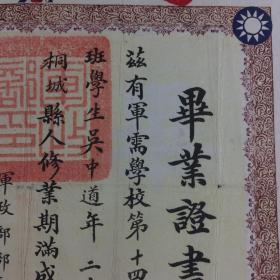 畢業證書
茲有軍需學校第十四
班學生吳中道年二
桐城縣人修業期滿成
軍政部部